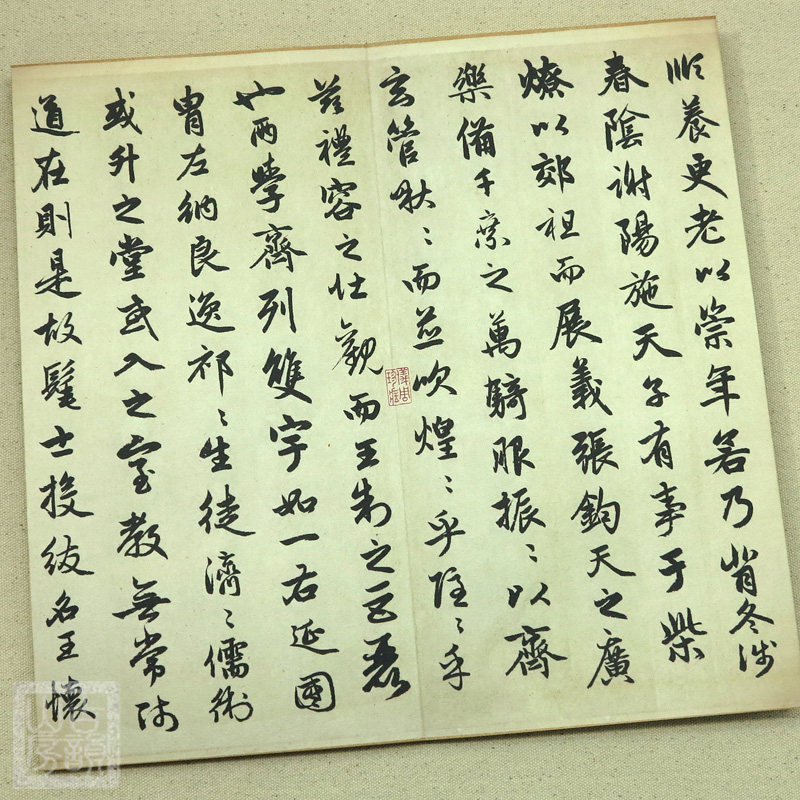 順養更老以崇年若乃背冬涉
春陰謝陽施天子有事于柴
燎以郊祖而展義張鈞天之廣
樂備千乘之萬騎服振〻以齊
玄管啾〻而並吹煌〻乎隱〻乎
茲禮容之壯觀而王制之巨麗
也兩學齊列雙宇如一右延國
胄左納良逸祁〻生徒濟〻儒術
或升之堂或入之室教無常師
道在則是故髦士投紱名王懷